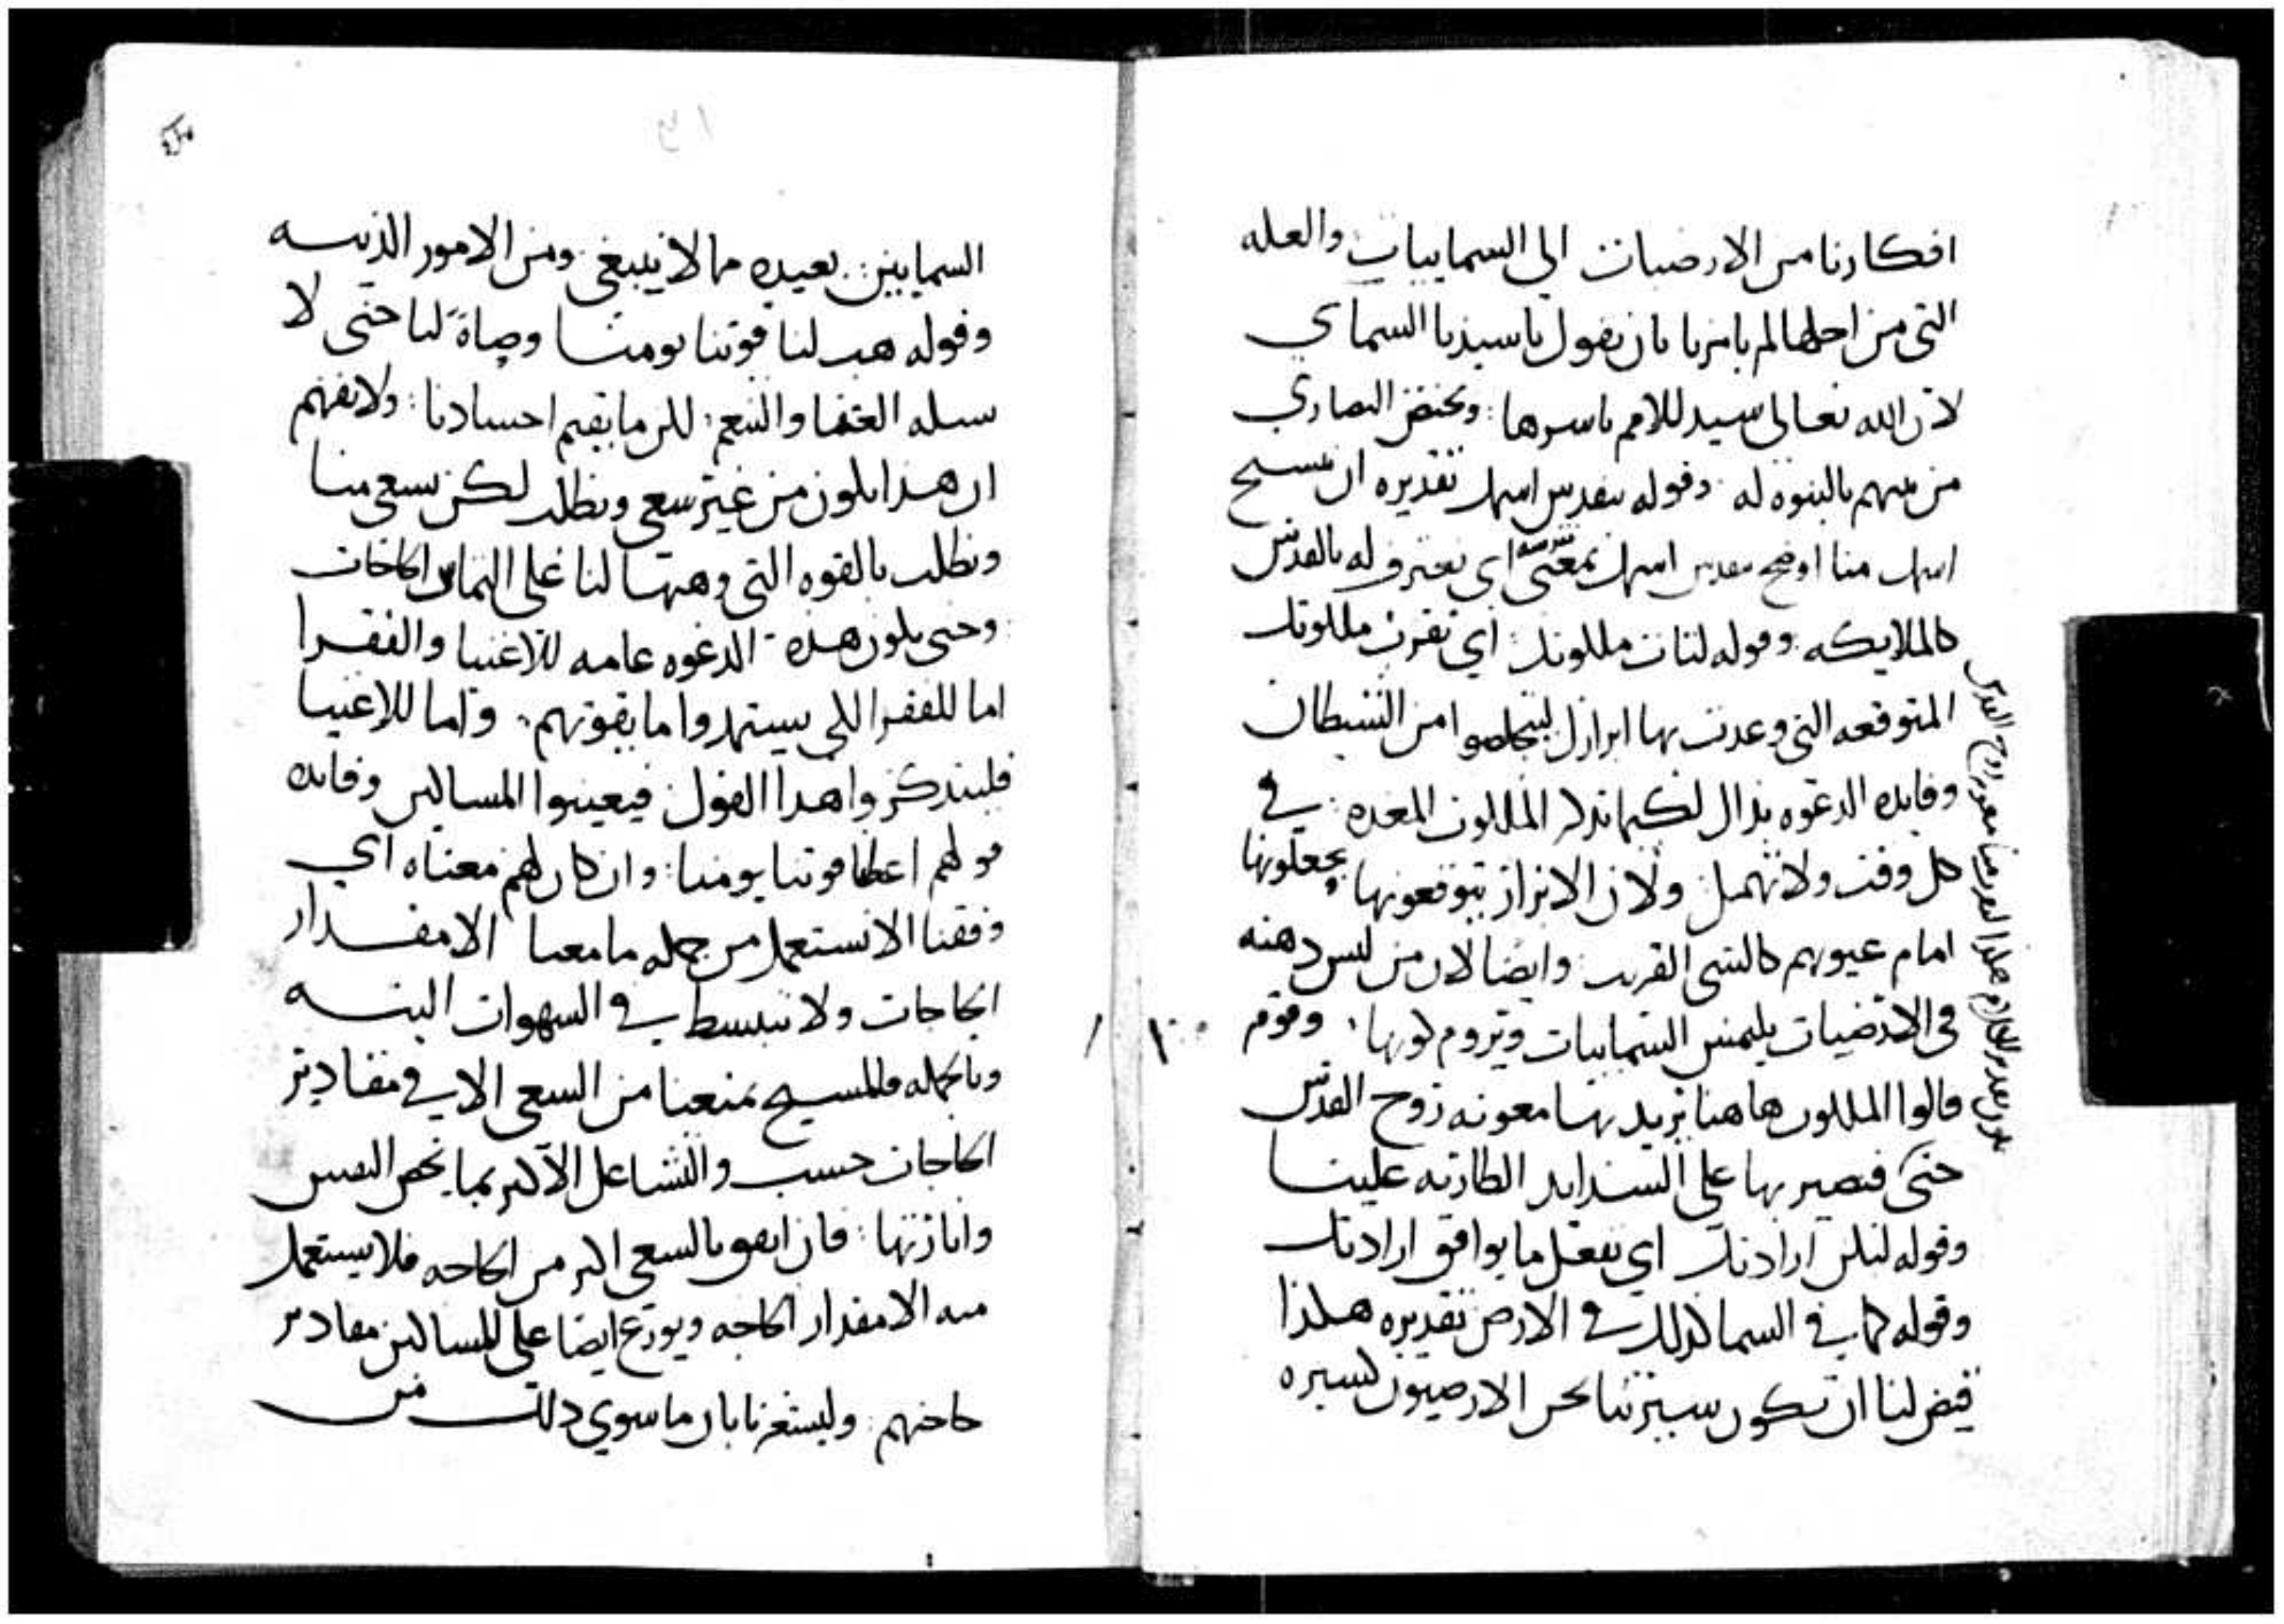 افكارنا من الارضيات الى السماييات والعله
التي من اجلها لم يامرنا بان نقول يا سيدنا السماي
لان الله تعالى سيد للامم باسرها : ويختص النصارى
من بينهم بالبنوه له وقوله يتقدس اسمك تقديره ان نسبح
اسمك منا اوضح مقدس اسمك بمعنى اي نعترف له بالقدس
كالملايكه وقوله لتات ملكوتك : اي تقرب ملكوتك
المتوقعه التي وعدت بها ابرارك ليتخلصوا من الشيطان
وفايده الدعوه بذاك لكيما تذكر الملكوت المعده : في
كل وقت ولا تهمل ولان الابرار يتوقعونها ويجعلونها
امام عيونهم كالشي القريب وايضا لان من ليس ذهنه
في الارضيات يلتمس السماييات ويروم كونها . وقوم
قالوا الملكوت هاهنا يريد بها معونه روح القدس
حتى فنصير بها على الشدايد الطاريه علينا
وقوله لتكن ارادتك اي نفعل ما يوافق ارادتك
وقوله كما في السما كذلك في الارض تقديره هكذا
قيض لنا ان تكون سيرتنا نحن الارضيون كسيره
روح القدس
السماييين : بعيده مما لا ينبغي ومن الامور الدنيسه
وقوله هب لنا قوتنا يومنا وصاة لنا حتى لا
نسله الغنا والتنعم . لكن ما يقيم اجسادنا : ولا نفهم
ان هذا يكون من غير سعي وتطلب لكن نسعى منا
ونطلب بالقوه التي وهبها لنا على التماس الحاجات
وحتى يكون هذه الدعوه عامه للاغنيا والفقرا
اما للفقرا لكي يستمدوا ما يقوتهم . واما للاغنيا
فليتذكروا هذا القول فيعينوا المساكين وفايده
قولهم اعطنا قوتنا يومنا : وان كان لهم معناه اي
وفقنا الا نستعمل من جمله ما معنا الا مقدار
الحاجات ولا ننبسط في الشهوات البته
وبالجمله فالمسيح يمنعنا من السعي الا في مقادير
الحاجات حسب والتشاغل الاكثر بما يخص النفس
وانارتها : فان اتفق بالسعي اكثر من الحاجه فلا يستعمل
منه الا مقدار الحاجه ويوزع ايضا على المساكين مقادير
حاجتهم : وليشعرنا بان ما سوي ذلك من